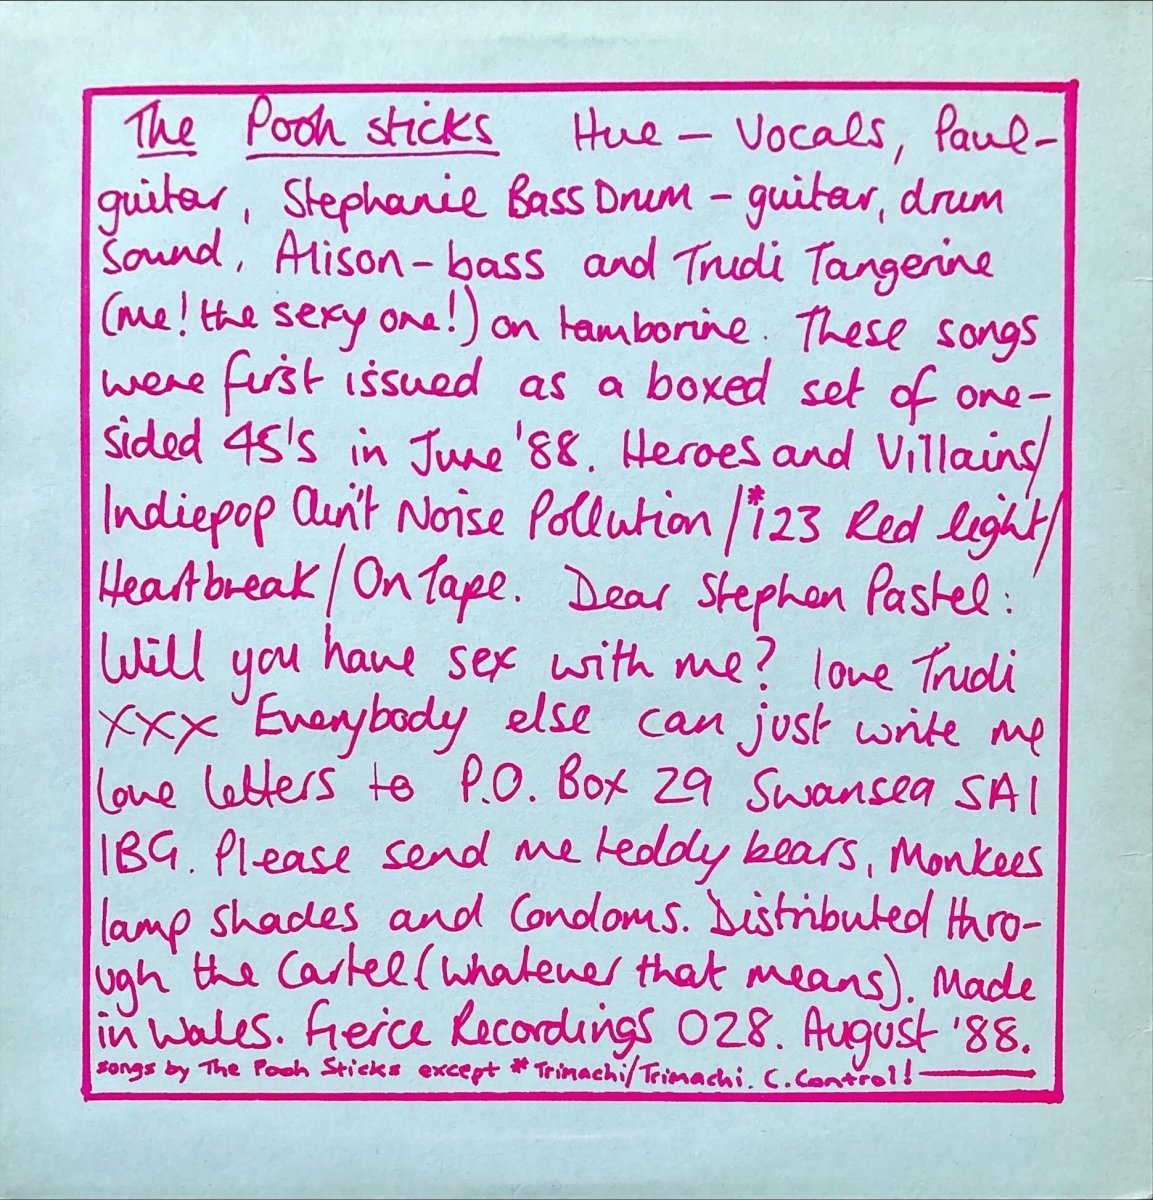 The Pooh sticks Hue – Vocals, Paul-
guitar, Stephanie Bass Drum – guitar, drum
sound, Alison – bass and Trudi Tangerine
(me! the sexy one!) on tamborine. These songs
were first issued as a boxed set of one-
sided 45's in June '88. Heroes and Villains/
Indiepop Ain't Noise Pollution/*123 Red light/
Heartbreak/On Tape. Dear Stephen Pastel:
Will you have sex with me? love Trudi
xxx Everybody else can just write me
love letters to P.O. Box 29 Swansea SA1
1BG. Please send me teddy bears, Monkees
lamp shades and Condoms. Distributed thro-
ugh the Cartel (whatever that means). Made
in Wales. Fierce Recordings 028. August '88.
songs by The Pooh Sticks except *Trimachi/Trimachi. C. Control!